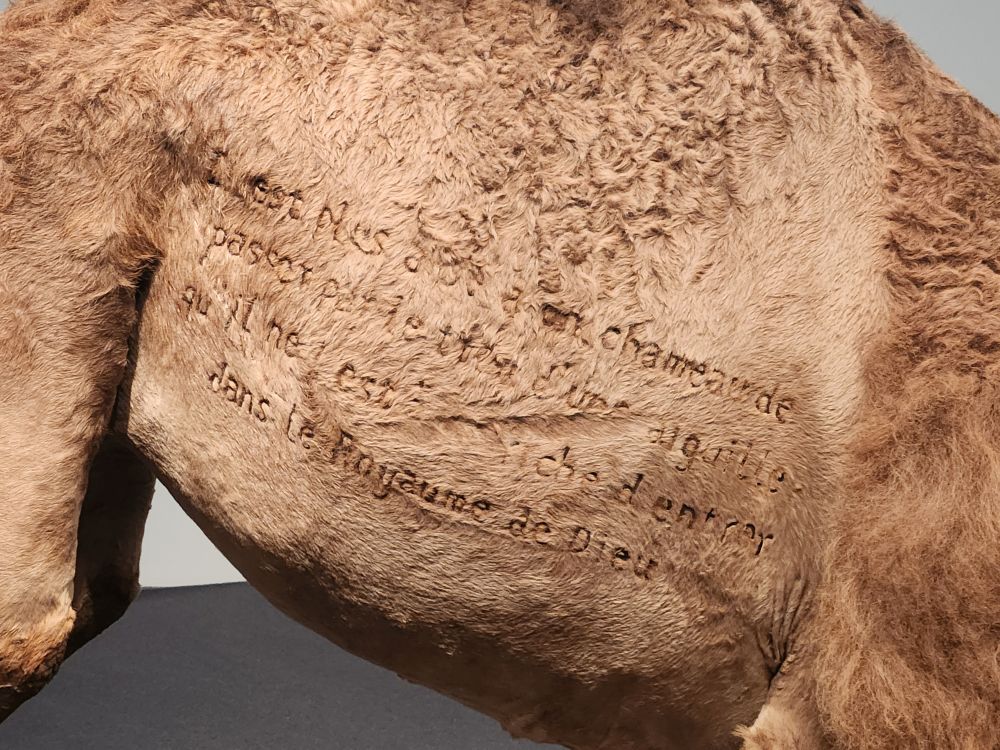 est Plus un chameau de
passer par le trou d'une aiguille.
qu'il ne est riche d'entrer
dans le Royaume de Dieu